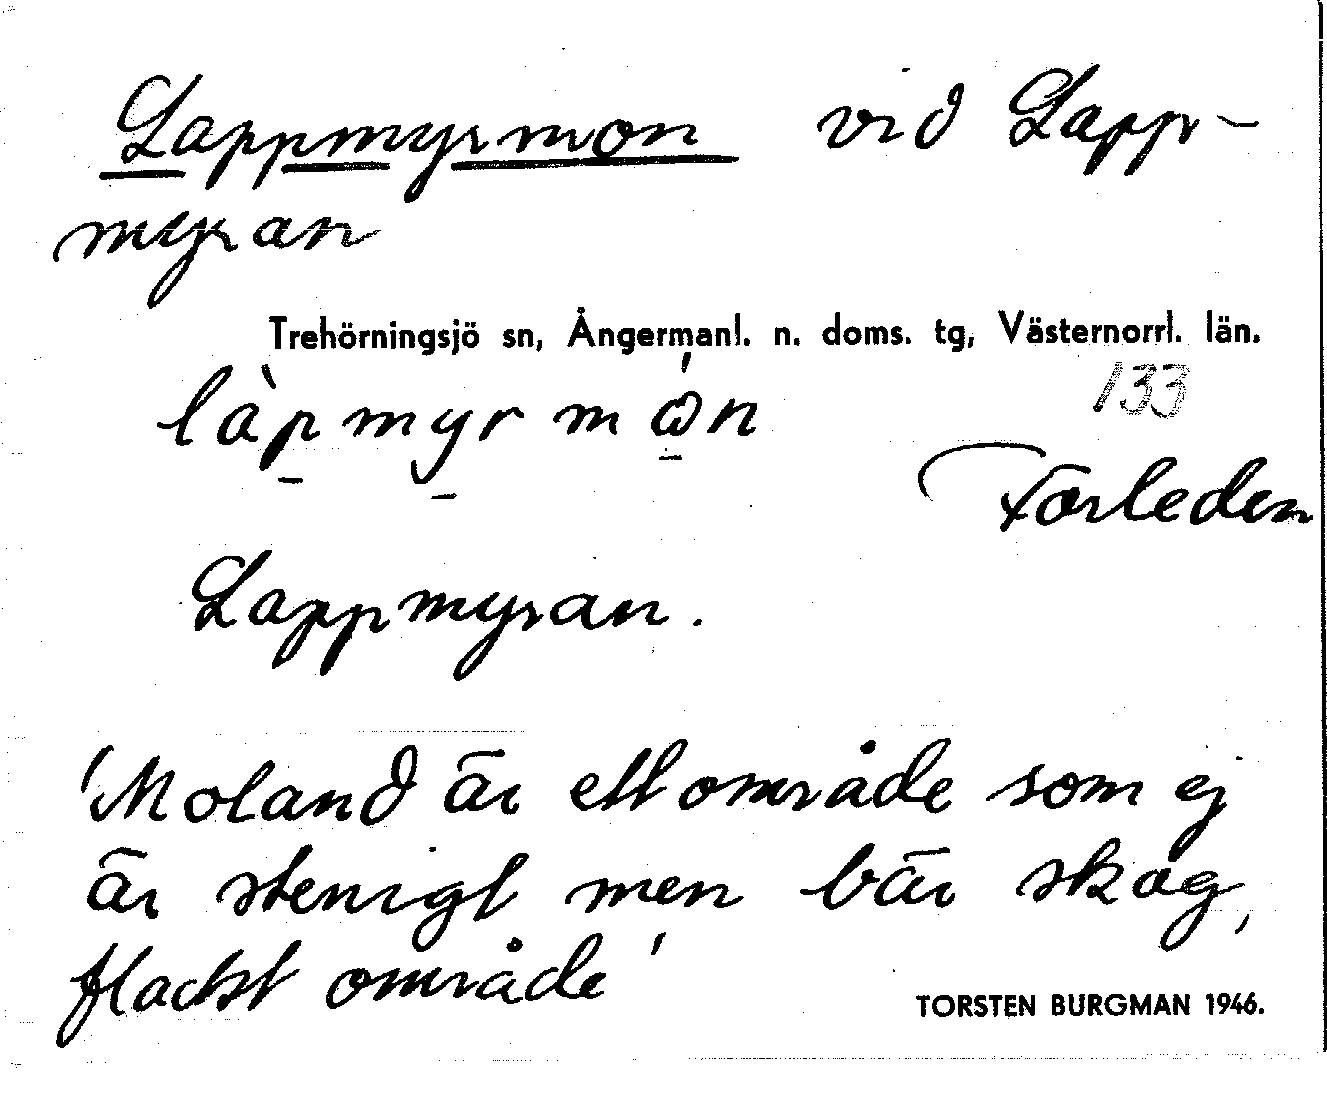 Lappmyrmon vid Lapp-
myran
Trehörningsjö sn, Ångermanl. n. doms. tg, Västernorrl. län.
làpmyrmón
133
Förleden
Lappmyran.
'Moland är ett område som ej
är stenigt men bär skog,
flackt område'
TORSTEN BURGMAN 1946.